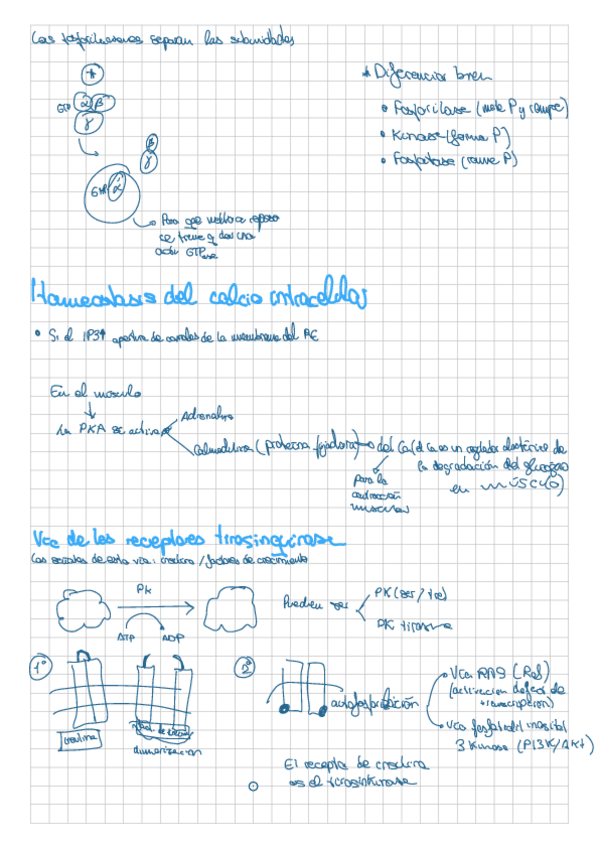 Las fosforilaciones separan las subunidades
+
GTP α β
γ
β
γ
GTP α
Para que vuelva a reposo
se tiene q dar una
activ GTPasa
* Diferenciar bien
• Fosforilasa (mete P y rompe)
• Kinasa (forma P)
• Fosfatasa (rompe P)
Homeostasis del calcio intracelular
• Si el IP3↑ apertura de canales de la membrana del RE
En el músculo
La PKA se activa
Adrenalina
Calmodulina (proteína fijadora) → del Ca (el Ca es un regulador alostérico de
la degradación del glucógeno
en MÚSCULO)
para la
contracción
muscular
Vía de los receptores tirosinquinasa
Las señales de esta vía: insulina / factores de crecimiento
PK
ATP
ADP
Pueden ser
PK (ser / tre)
PK tirosina
1º
insulina
dimerización
2º
autofosforilación
Vía RAS (Raf)
(activación defect de
transcripción)
Vía fosfatidil inositol
3 Kinasa (PI3K/AKt)
El receptor de insulina
es el tirosinkinasa